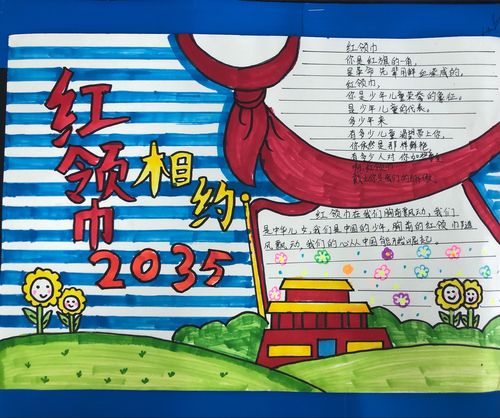 红领巾
相约
2035
红领巾
你是红旗的一角,
是革命先辈用鲜血染成的,
红领巾,
你是少年儿童荣誉的象征。
是少年儿童的代表。
多少年来
有多少儿童渴望带上你,
你依然是那样鲜艳
有多少人对你
红领巾在我们胸前飘动,我们
是中华儿女,我们是中国的少年,胸前的红领巾
风飘动,我们的心从中国